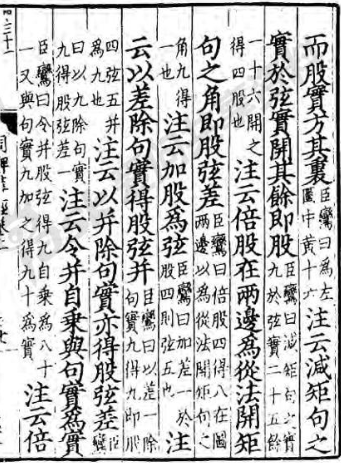 而股實方其裏臣鸞曰為左圖中黄十六注云減矩句之
實於弦實開其餘即股臣鸞曰減矩句之實九於弦實二十五餘
一十六開之得四股也注云倍股在兩邊為從法開矩
句之角即股弦差臣鸞曰倍股四得八在圖兩邊以為從法開矩句之
角九得一也注云加股為弦臣鸞曰加差一於股四則弦五也注
云以差除句實得股弦并臣鸞曰以差一除句實九得九即股
四弦五并為九也注云以并除句實亦得股弦差臣鸞
曰以九除句實九得股弦差一注云令并自乘與句實為實
臣鸞曰令并股弦得九自乘為八十一又與句實九加之得九十為實注云倍